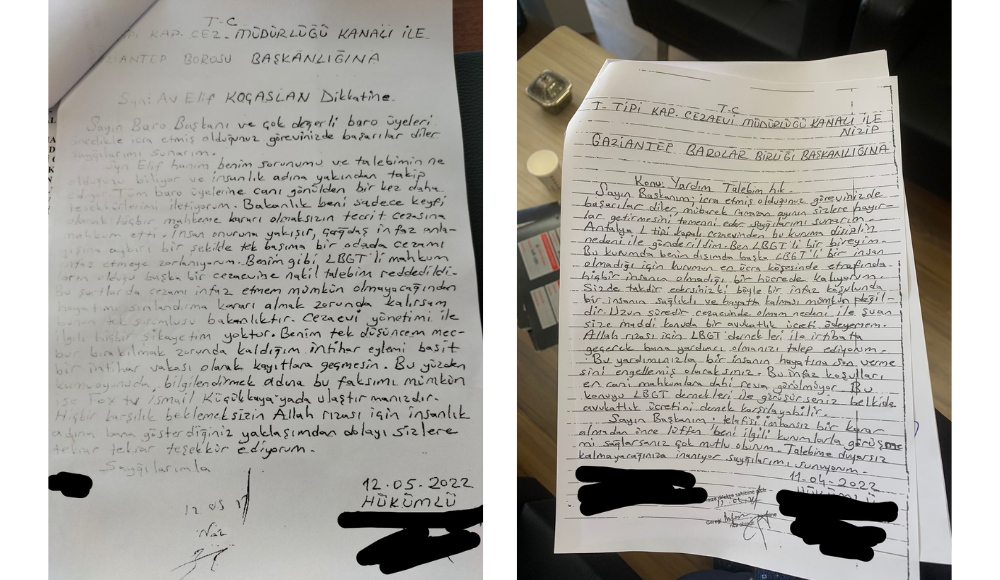 T-C
KAP. CEZ. MÜDÜRLÜĞÜ KANALI İLE
BOROSU BAŞKANLIĞINA
Syn: Av Elif KOÇASLAN Dikkatine.
Sayın Baro Başkanı ve çok değerli baro üyeleri
icra etmiş olduğunuz görevinizde başarılar diler
saygılarımı sunarım.
Syn Elif hanım benim sorunumu ve talebimin ne
olduğunu biliyor ve insanlık adına yakından takip
Tüm baro üyelerine canı gönülden bir kez daha
teşekkürlerimi iletiyorum. Bakanlık beni sadece keyfi
hiçbir mahkeme kararı olmaksızın tecrit cezasına
etti. İnsan onuruna yakışır, çağdaş infaz anla-
aykırı bir şekilde tek başıma bir odada cezamı
infaz etmeye zorlanıyorum. Benim gibi LBGT'li mahkum
olduğu başka bir cezaevine nakil talebim reddedildi.
bu şartlarda cezamı infaz etmem mümkün olmayacağından
sonlandırma kararı almak zorunda kalırsam
tek sorumlusu bakanlıktır. Cezaevi yönetimi ile
ilgili hiçbir şikayetim yoktur. Benim tek düşüncem mec-
bırakılmak zorunda kaldığım intihar eylemi basit
bir intihar vakası olarak kayıtlara geçmesin. Bu yüzden
bilgilendirmek adına bu faksımı mümkün
Fox tv ismail Küçükkaya'yada ulaştırmanızdır.
Hiçbir karşılık beklemeksizin Allah rızası için insanlık
adına bana gösterdiğiniz yaklaşımdan dolayı sizlere
tekrar tekrar teşekkür ediyorum.
Saygılarımla
12-05-2022
HÜKÜMLÜ
12 05
T-C
T-TİPİ KAP. CEZAEVİ MÜDÜRLÜĞÜ KANALI İLE
NİZİP
GAZİANTEP BAROLAR BİRLİĞİ BAŞKANLIĞINA
Konu: Yardım Talebim hk.
Sayın Başkanım; icra etmiş olduğunuz görevinizde
başarılar diler, mübarek ramazan ayının sizlere hayır-
lar getirmesini temenni eder saygılarımı sunarım.
Antalya L tipi kapalı cezaevinden bu kuruma disiplin
nedeni ile gönderildim. Ben LBGT'li bir bireyim.
Bu kurumda benim dışımda başka LBGT'li bir insan
olmadığı için kurumun en ücra köşesinde etrafında
hiçbir insanın olmadığı bir hücrede kalıyorum.
Sizde takdir edersiniz ki böyle bir infaz koşulunda
bir insanın sağlıklı ve hayatta kalması mümkün değil-
dir. Uzun süredir cezaevinde olmam nedeni ile şuan
size maddi konuda bir avukatlık ücreti ödeyemem.
Allah rızası için LBGT dernekleri ile irtibata
geçerek bana yardımcı olmanızı talep ediyorum.
Bu yardımınızla bir insanın hayatına son verme
sini engellemiş olacaksınız. Bu infaz koşulları
en cani mahkumlara dahi reva görülmüyor. Bu
konuyu LBGT dernekleri ile görüşürseniz belkide
avukatlık ücretini dernek karşılayabilir.
Sayın Başkanım; telafisi imkansız bir karar
almadan önce lütfen beni ilgili kurumlarla görüşme
mi sağlarsanız çok mutlu olurum. Talebime duyarsız
kalmayacağınıza inanıyor saygılarımı sunuyorum.
11-04-2022
HÜKÜMLÜ